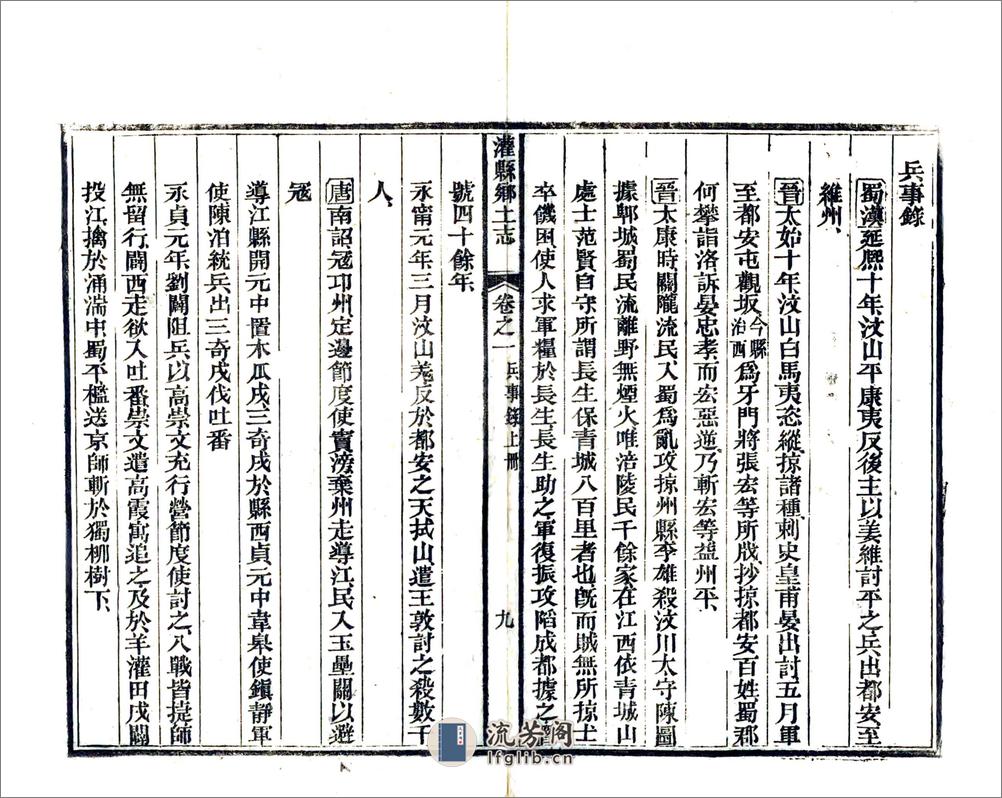 兵事錄
蜀漢延熈十年汶山平康夷反後主以姜維討平之兵出都安至
維州、
晉太始十年汶山白馬夷恣縱掠諸種刺史皇甫晏出討五月軍
至都安屯觀坂今縣治西爲牙門將張宏等所戕抄掠都安百姓蜀郡
何攀詣洛訴晏忠孝而宏惡逆乃斬宏等益州平、
晉太康時關隴流民入蜀爲亂攻掠州縣李雄殺汶川太守陳圖
據郫城蜀民流離野無煙火唯涪陵民千餘家在江西依青城山
處士范賢自守所謂長生保青城八百里者也旣而賊無所掠士
卒饑困使人求軍糧於長生長生助之軍復振攻陷成都據之
灌縣鄉土志
卷之一
兵事錄上冊
九
號四十餘年、
永甯元年三月汶山羌反於都安之天拭山遣王敦討之殺數千
人、
唐南詔寇邛州定邊節度使竇滂棄州走導江民入玉壘關以避
寇
導江縣開元中置木瓜戍三奇戍於縣西貞元中韋皋使鎭靜軍
使陳泊統兵出三奇戍伐吐番
永貞元年劉闢阻兵以高崇文充行營節度使討之八戰皆捷師
無留行闢西走欲入吐番崇文遣高霞寓追之及於羊灌田戍闢
投江擒於涌湍中蜀平檻送京師斬於獨柳樹下、
流芳阁
lfglib.cn